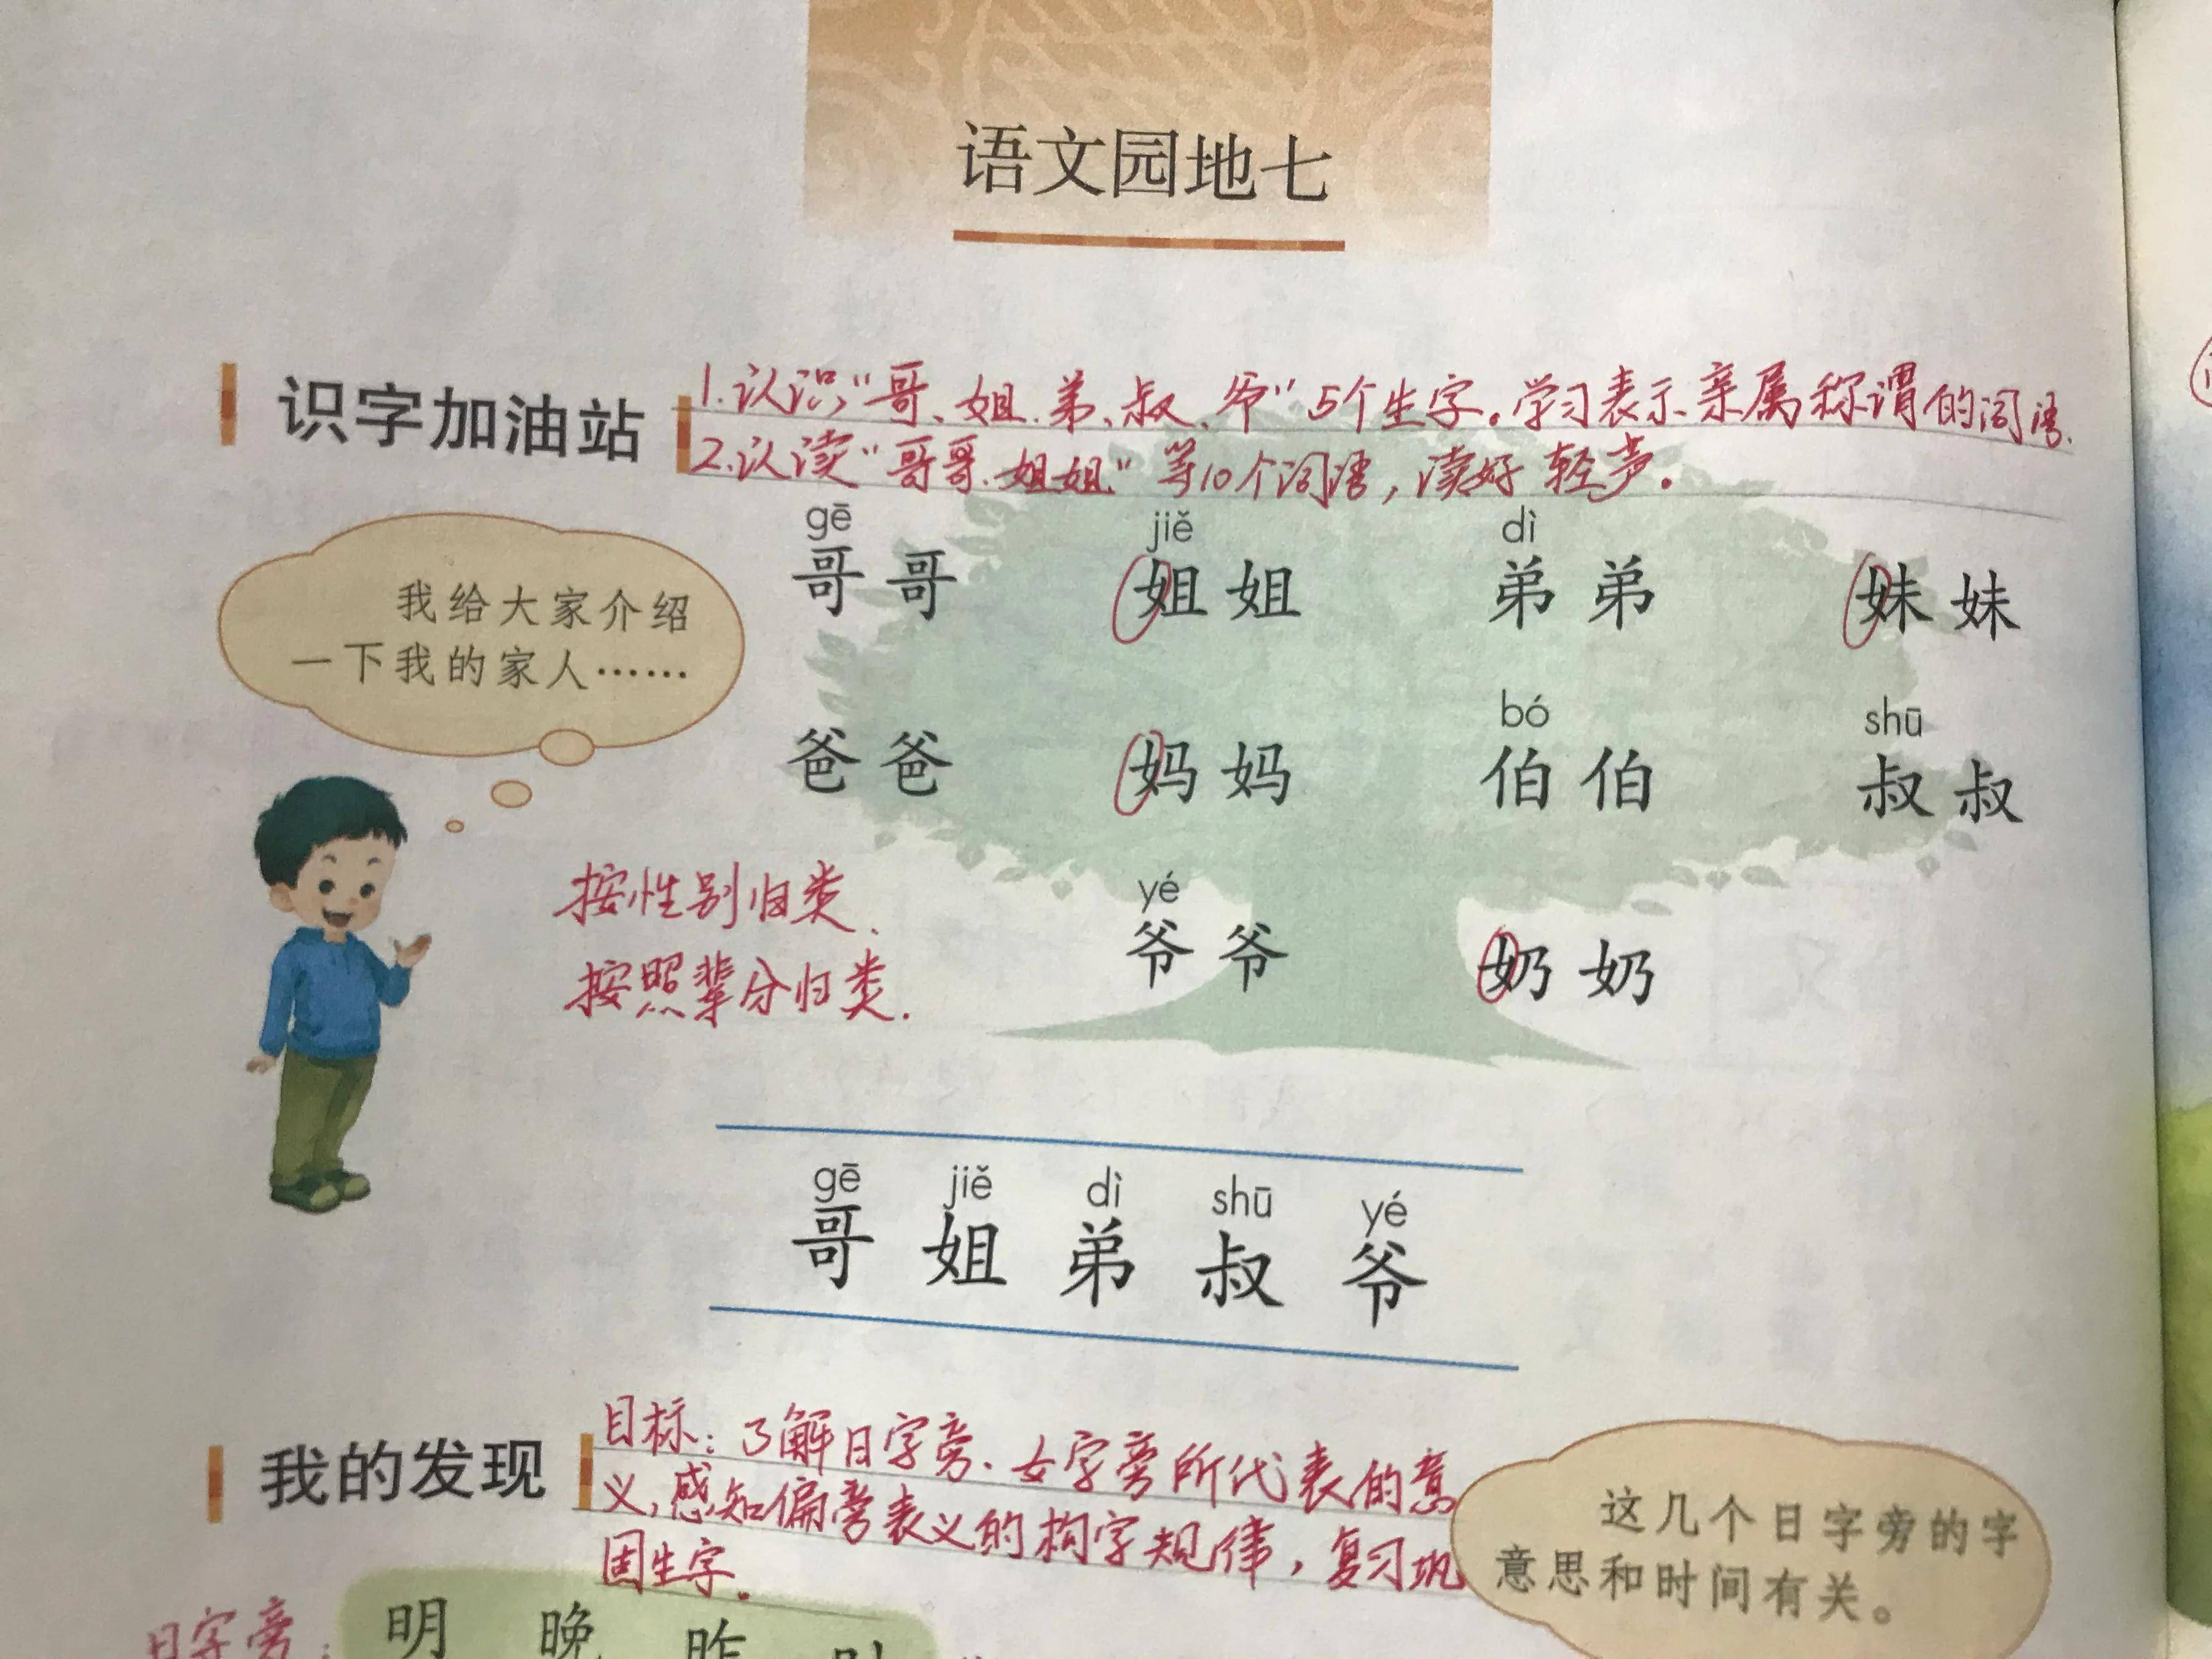 语文园地七
识字加油站
1.认识“哥、姐、弟、叔、爷”5个生字。学习表示亲属称谓的词语.
2.认读“哥哥、姐姐”等10个词语，读好轻声。
我给大家介绍
一下我的家人……
gē jiě dì
哥哥 姐姐 弟弟 妹妹
bó shū
爸爸 妈妈 伯伯 叔叔
yé
爷爷 奶奶
按性别归类.
按照辈分归类.
gē jiě dì shū yé
哥 姐 弟 叔 爷
我的发现
目标：了解日字旁、女字旁所代表的意
义,感知偏旁表义的构字规律，复习巩
固生字。
这几个日字旁的字
意思和时间有关。
日字旁：
明 晚 昨